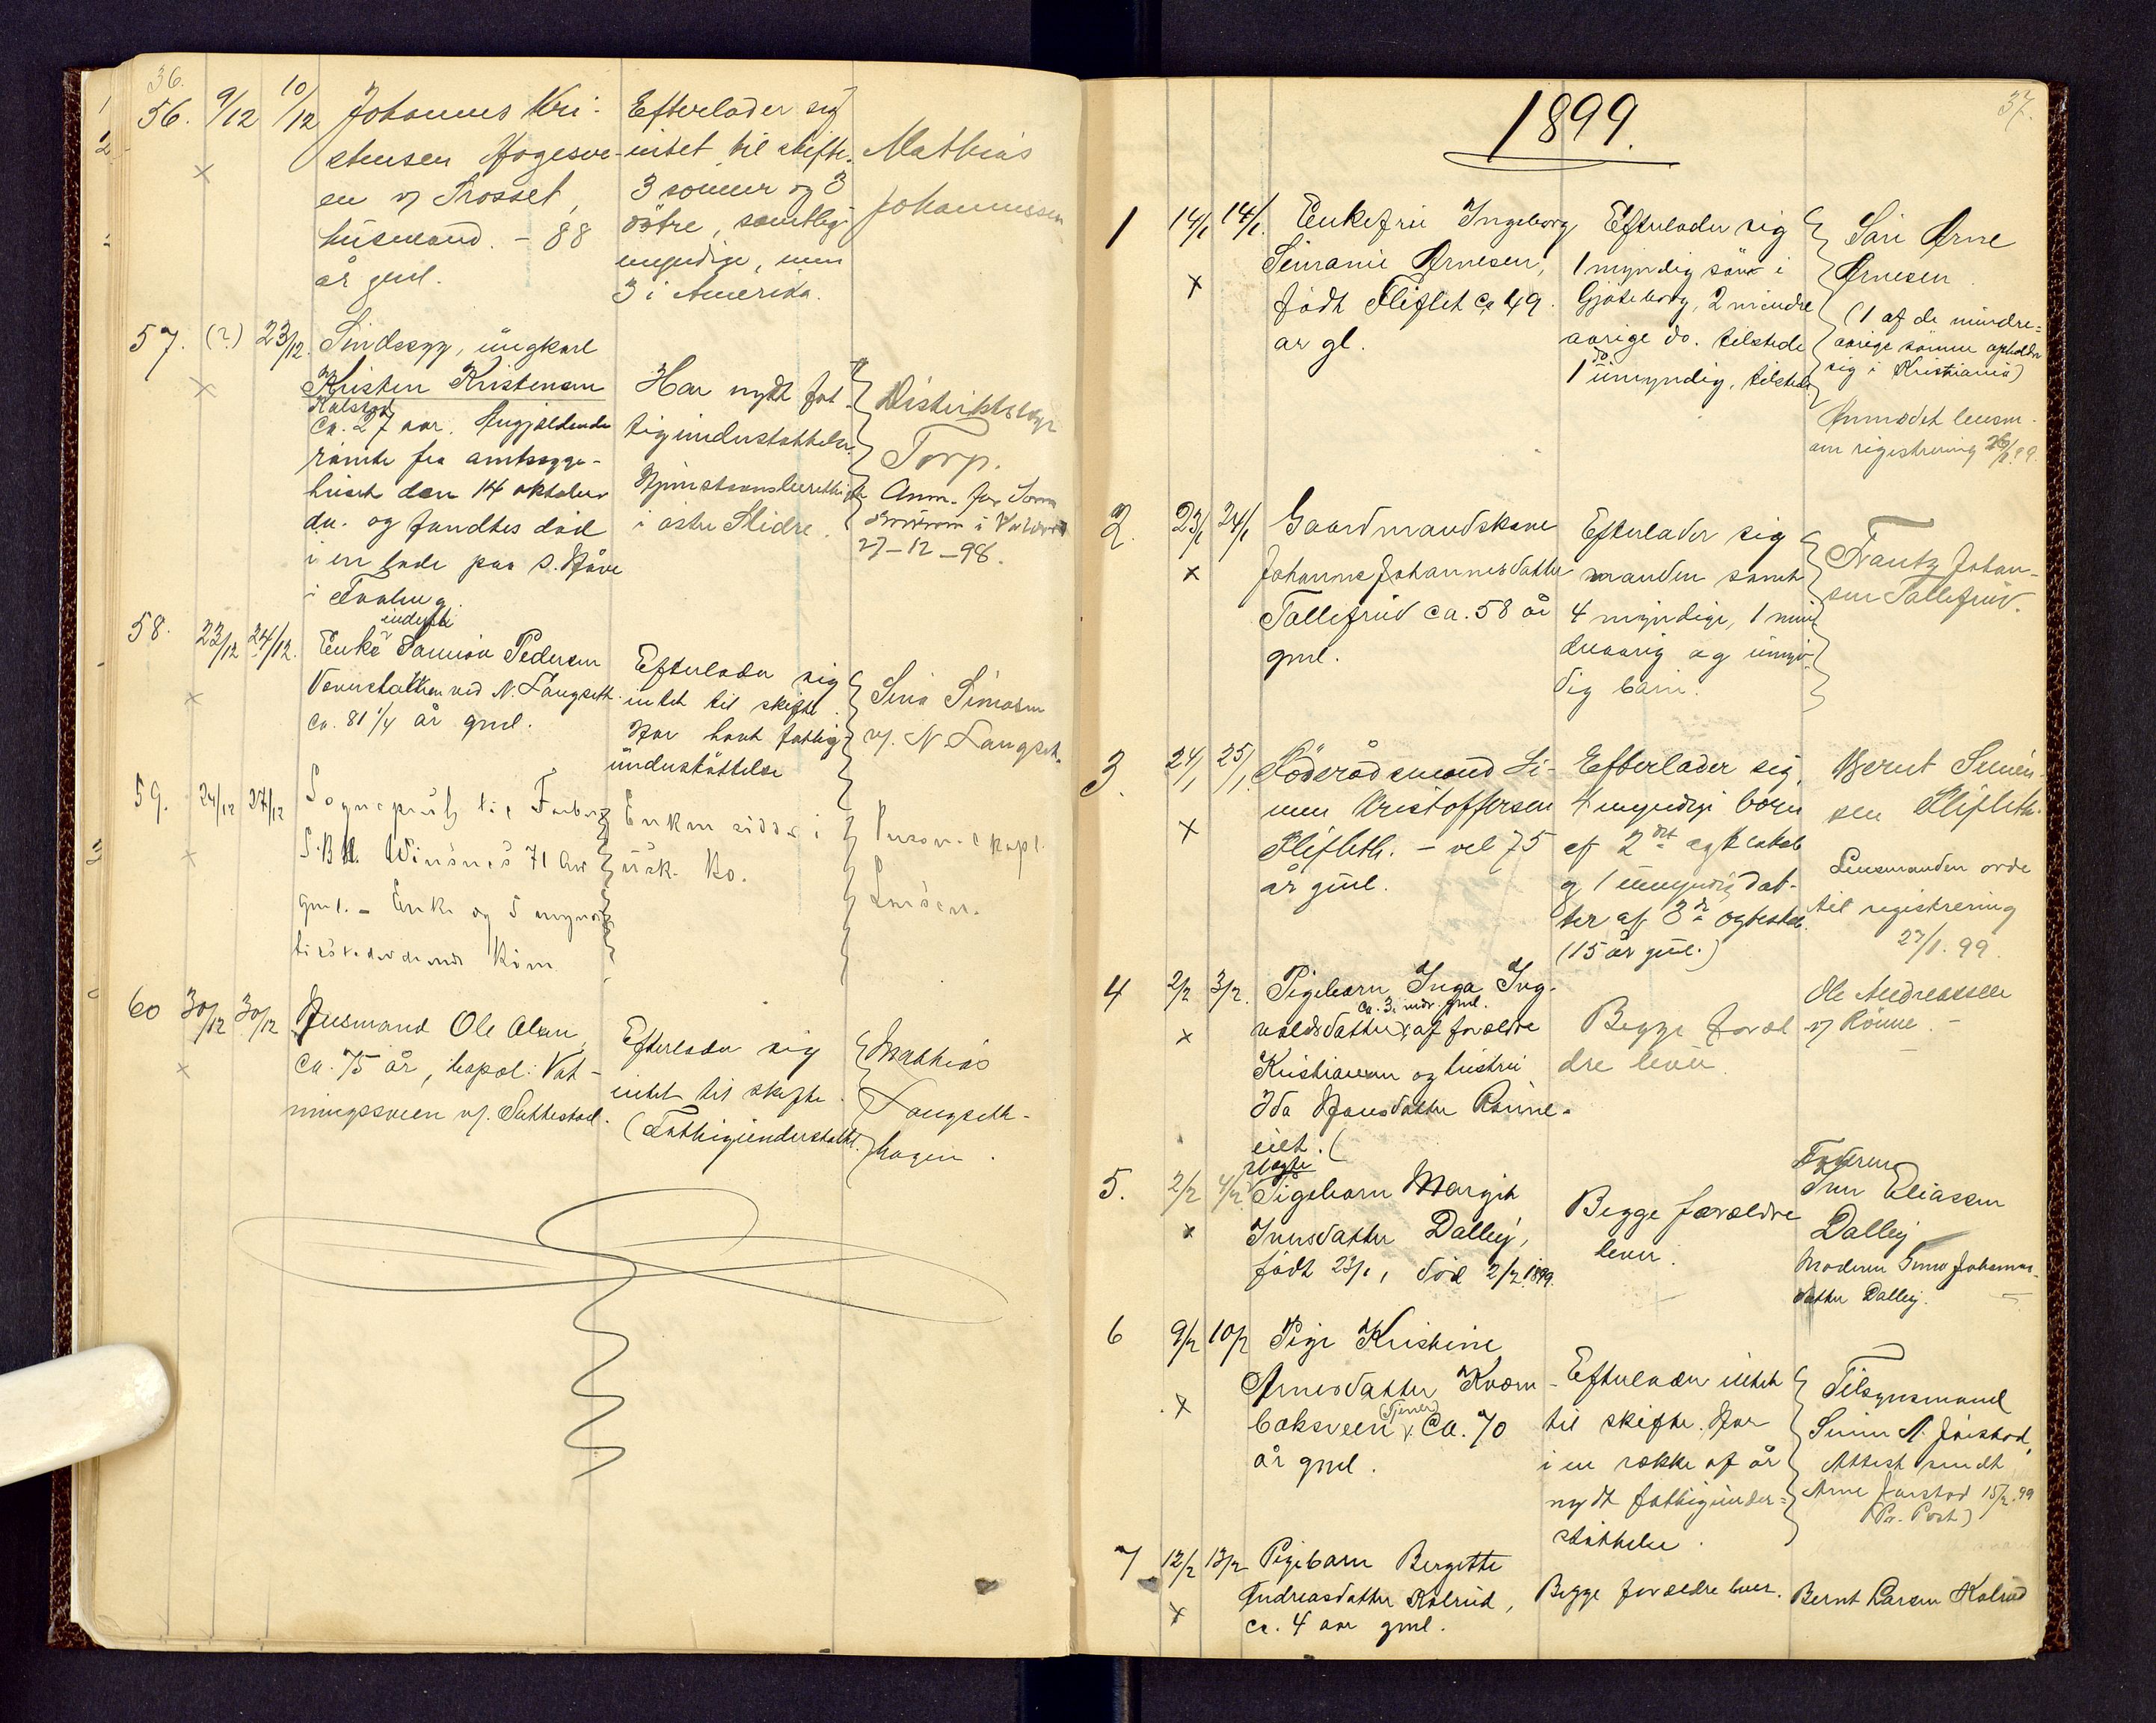 36.
56. 9/12 10/12
Johannes Kri-
stensen Hagesve-
en v/ Trosset,
husmand. - 88
år gml.
Efterlader sig
intet til skifte.
3 sønner og 3
døtre, samtlige
myndige, men
3 i Amerika.
Mathias
Johannessen
57. (?) 23/12.
Sindssyg, ungkarl
Kristen Kristensen
ca. 27 aar.
rømte fra amtssyge-
huset den 14 oktober
d.a. og fandtes død
i en lade paa S. Høve
i
Har nydt fat-
tigunderstøttelse.
Hjemstavnsberettiget
i østre Slidre.
Distriktslæge
Torp.
Anm. for
i Valdres
27-12-98.
58. 23/12 24/12.
Enke Pedersen
ved N. Langseth
ca. 81 1/4 år gml.
Efterlader sig
intet til skifte.
Har havt fattig-
understøttelse
Simosen
v/. N. Langset.
59. 24/12 27/12
Sogneprest til
Winsnes 71 Aar
gml. - Enke og 5 mynd
Enken sidder i
usk. Bo.
Person. Kapl.
60 30/12 30/12
Husmand Ole Olsen
ca. 75 år,
v/.
Efterlader sig
intet til skifte.
(Fattigunderstøttet.
Mathias
Langseth-
hagen.
37.
1899.
1 14/1 14/1.
Enkefru Ingeborg
Simanie Arnesen,
født Fliflet ca 49
ar gl.
Efterlader sig
1 myndig søn i
Gjøteborg, 2 mindre
aarige do. tilstede
do.
1 umyndig, tilstede
Arne
Arnesen.
(1 af de mindre=
aarige sønner opholder
sig i Kristiania)
Anmodet lensm.
om registrering
2. 23/1 24/1
Gaardmandskone
Johanne Johannesdatter
Tallefrud ca. 58 år
gml.
Efterlader sig
manden samt
4 myndige, 1 min-
dreaarig og umyn-
dig barn.
Frantz Johan-
sen Tallefrud.
3. 24/1 25/1.
Föderådsmand Si-
men Kristoffersen
Flifleth. - vel 75
år gml.
Efterlader sig
4 myndige børn
af 2det ægteskab
og 1 umyndig dat-
ter af 3die ægteskab.
(15 år gml.)
Bernt Simen-
sen Flifleth.
Lensmanden ordre
til registrering
27/1. 99.
4 2/2 3/2.
Pigebarn Inga Ing-
ca. 3 mdr. gml.
valdsdatter af forældre
og hustru
Ida Hansdatter Rønne-
eiet.
Begge foræl
dre lever.
Ole Andreassen
v/ Rönne. -
5. 2/2 4/2
Pigebarn Margit
Iversdatter Dalbey,
født 23/1, død 2/2 1899.
Begge forældre
lever.
Faderen
Iver Eliassen
Dalbey
Moderen
datter Dalbey.
6 9/2 10/2
Pige Kristine
Arnesdatter Kværn-
(tjener)
baksveen ca. 70
år gml.
Efterlader intet
til skifte. Har
i en række af år
nydt fattigunder=
støttelse.
Tilsynsmand
Simen A.
Attest sendt
Arne 15/2. 99
(Pr. Post)
7 12/2 13/2
Pigebarn Bergitte
Andreasdatter Kolrud,
ca. 4 aar gml.
Begge forældre lever.
Bernt Larsen Kolrud